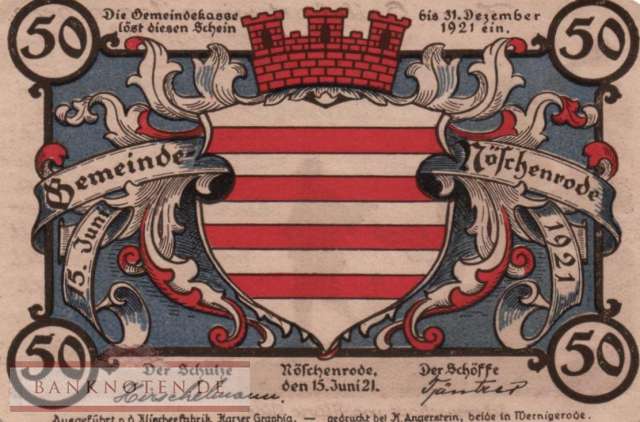 50
Die Gemeindekasse
löst diesen Schein
bis 31. Dezember
1921 ein.
50
Gemeinde
Nöschenrode
15. Juni
1921
50
Der Schulze
Hirschelmann.
Nöschenrode,
den 15. Juni 21.
Der Schöffe
50
BANKNOTEN.DE
Ausgeführt v. d. Klischeefabrik Harzer Graphia, — gedruckt bei H. Angerstein, beide in Wernigerode.